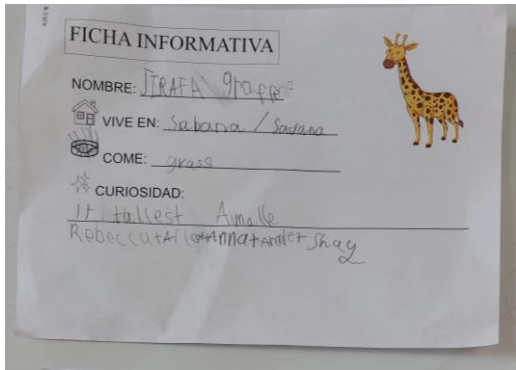 FICHA INFORMATIVA
NOMBRE: JIRAFA graffe
VIVE EN: Sabana / Savana
COME: grass
CURIOSIDAD:
it tallest Amalle
Rebecca+ +Anna+ Shay